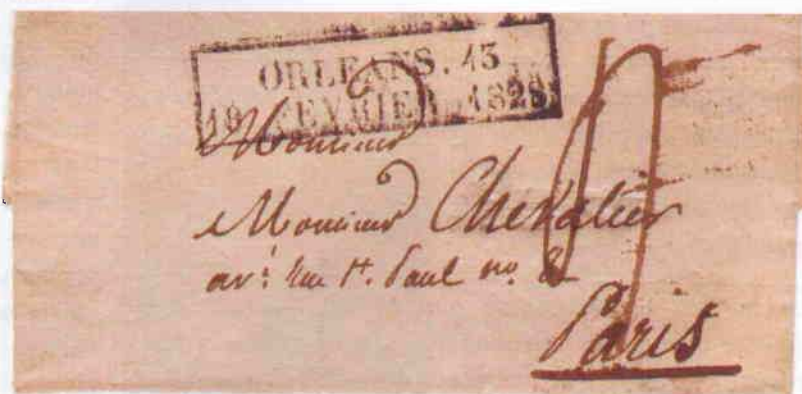 ORLEANS. 13
19 FEVRIER 1828
Monsieur
Monsieur Chevalier
av.t Rue St. Paul no. 8
Paris